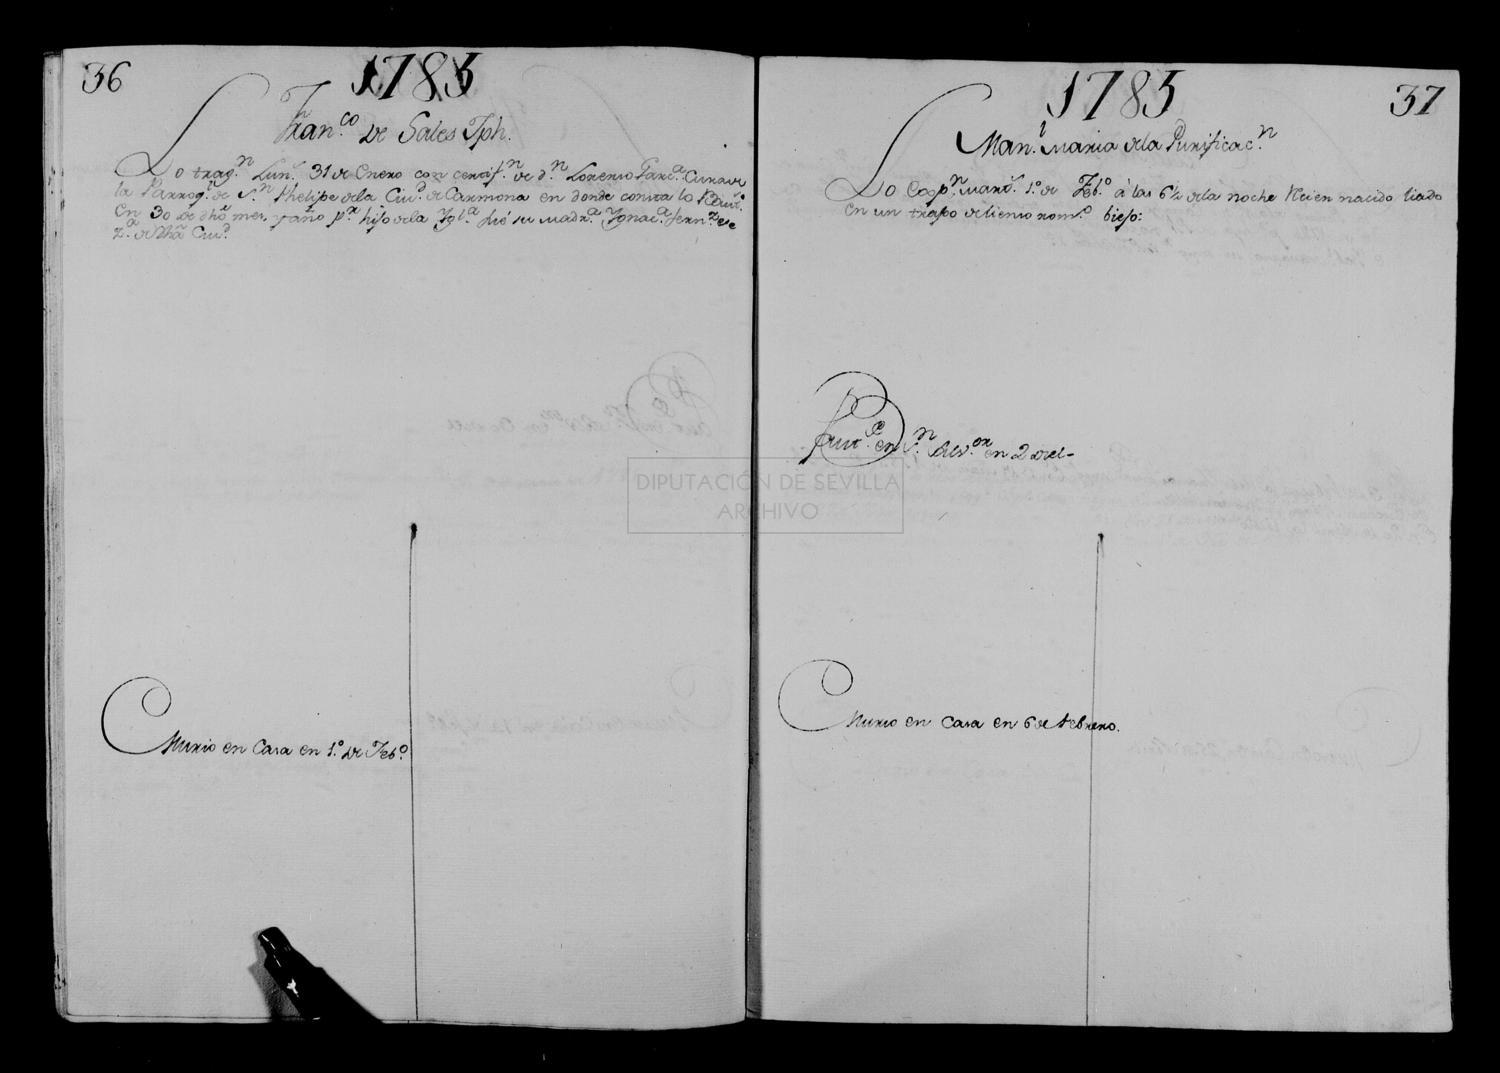 36
1785
Fran.co de Sales Jph.
Lo trag.n Lun.s 31 de Enero con certif.n de d.n Lorenzo Garc.a Cura de
la Parroq.l de S.n Phelipe de la Ciu.d de Carmona en donde consta lo Baut.o
en 30 de dho mes, y año p.r hijo de la Ygl.a
Ciu.d
Murio en Casa en 1.o de Feb.o
1785
37
Man.l Maria de la Purificac.n
Lo Cog.n Mart.s 1.o de Feb.o à las 6½ de la noche Recien nacido liado
en un trapo de lienso viejo:
en S.n Salv.or en 2 del
Murio en Casa en 6 de febrero.
DIPUTACIÓN DE SEVILLA
ARCHIVO